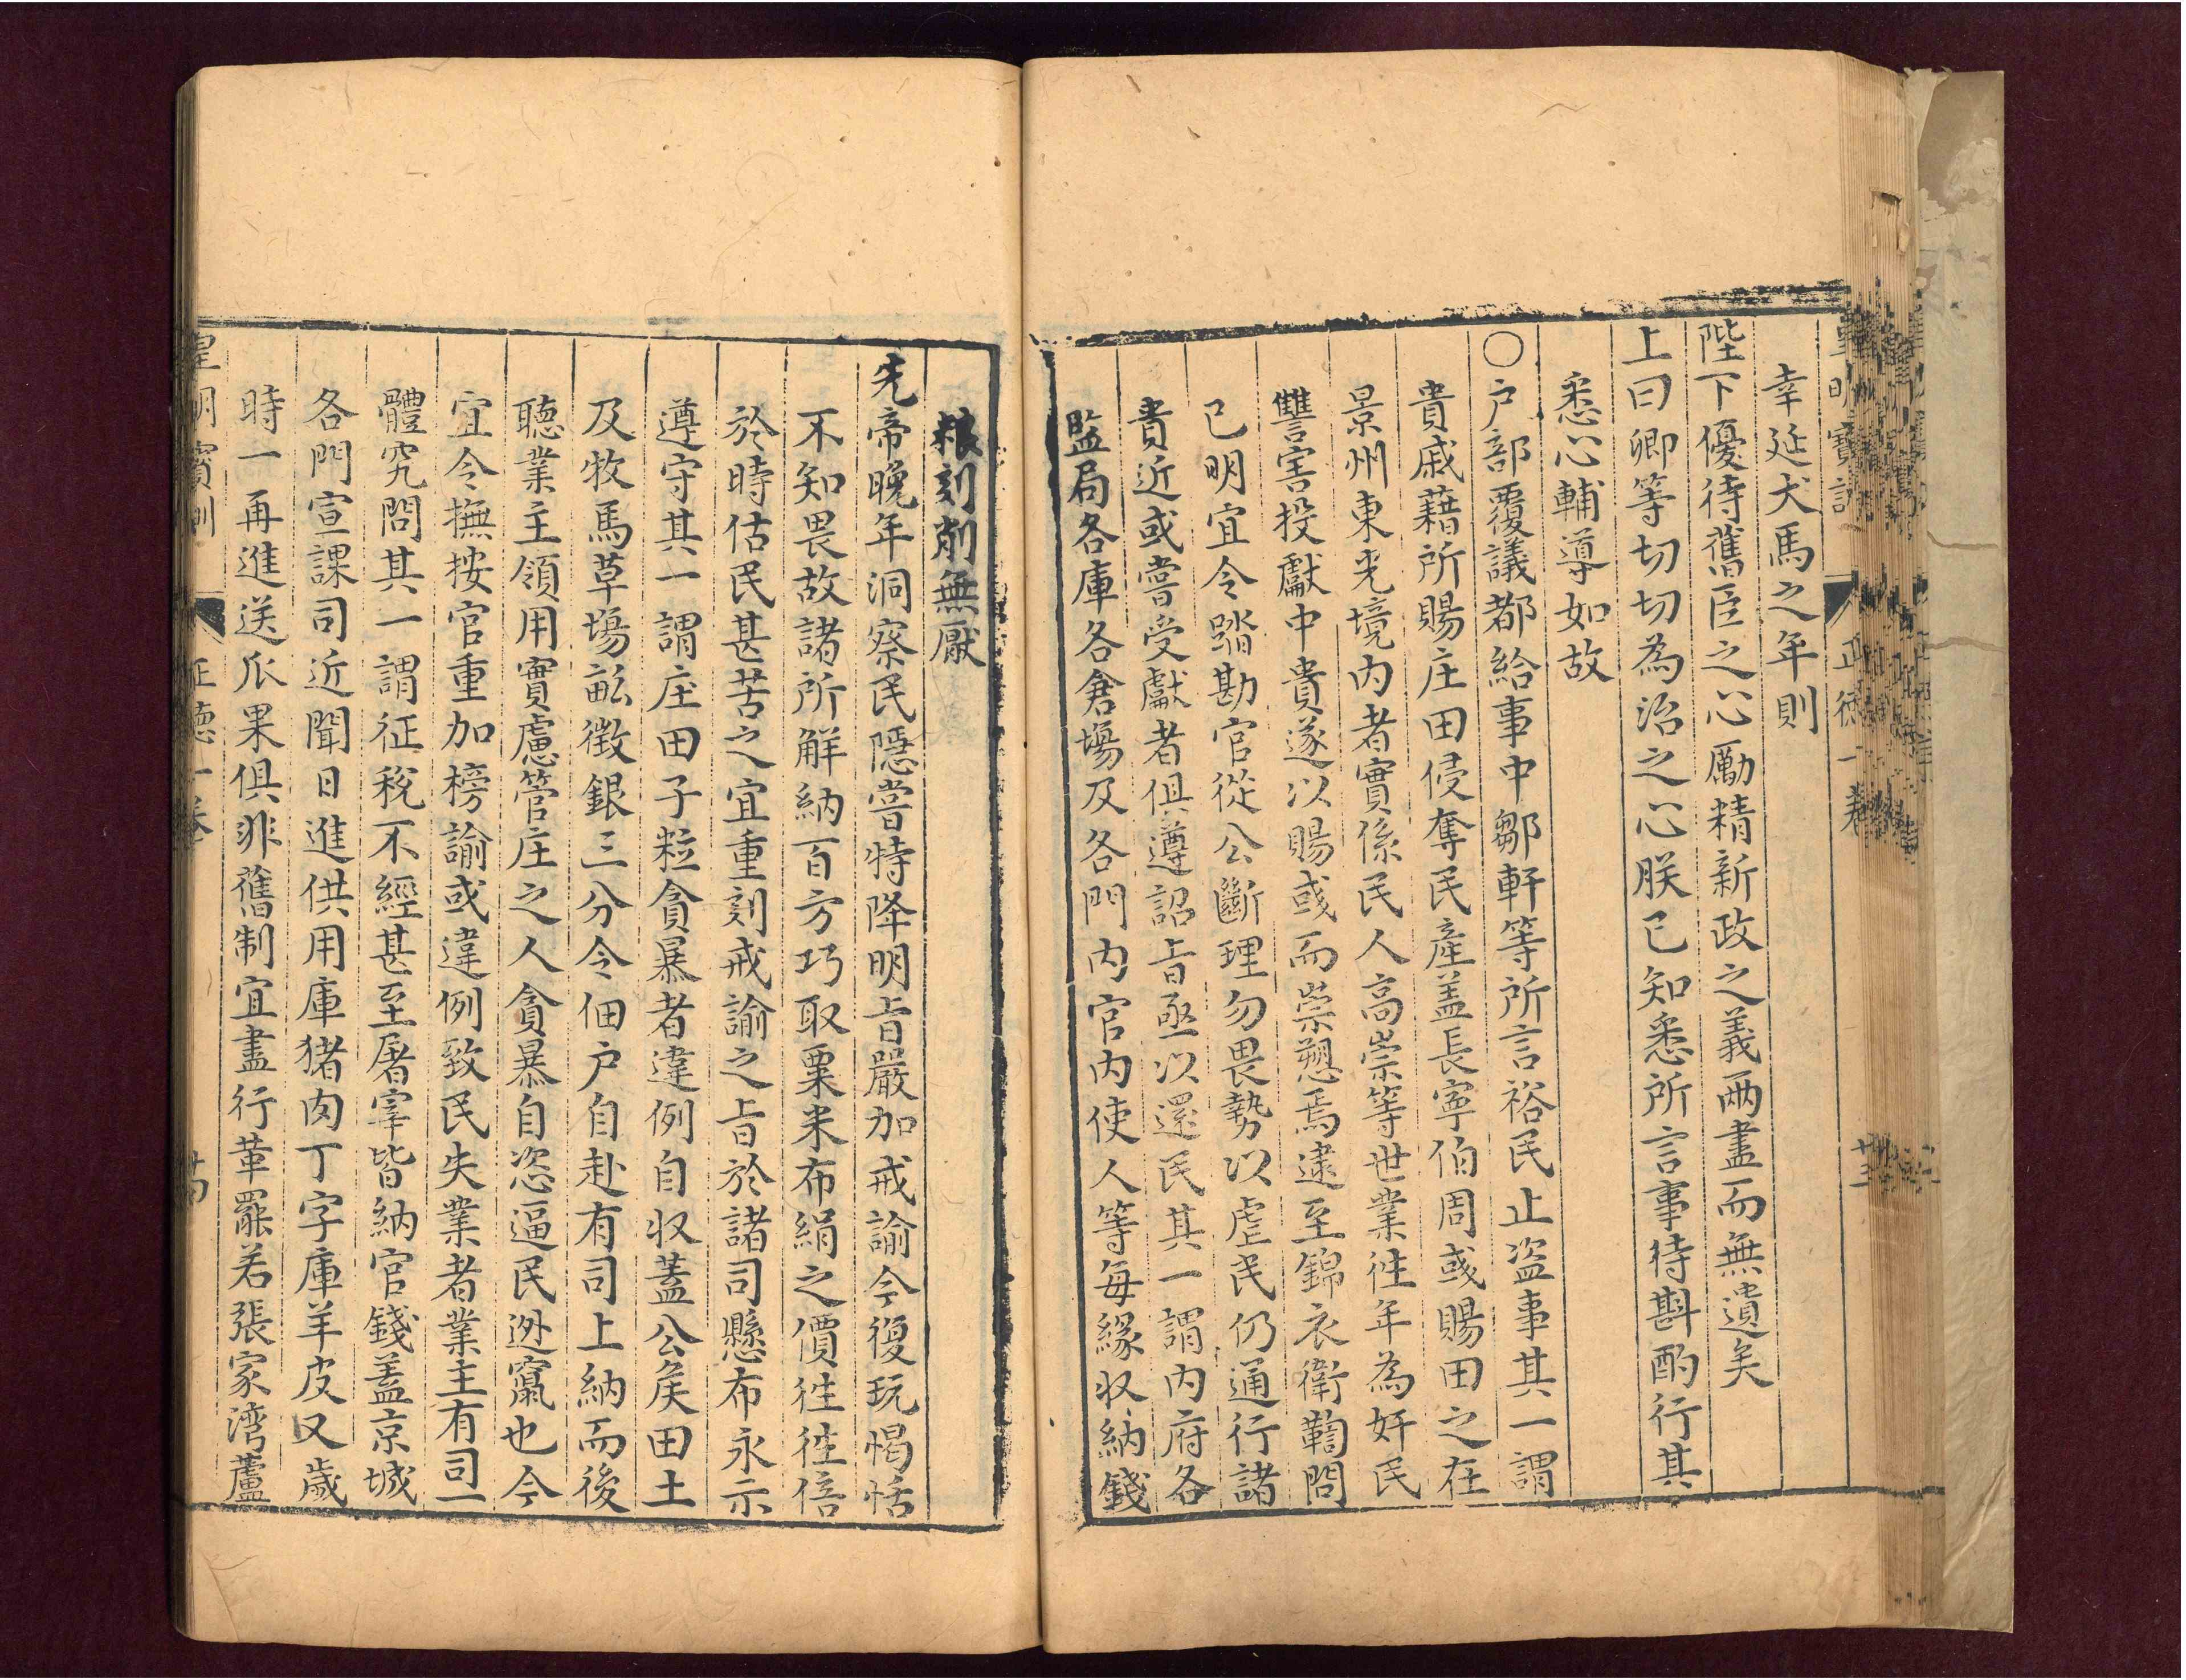 皇明寶訓　正德一卷　十三
幸延犬馬之年則
陛下優待舊臣之心勵精新政之義兩盡而無遺矣
上曰卿等切切為治之心朕已知悉所言事待斟酌行其
悉心輔導如故
○戶部覆議都給事中鄒軒等所言裕民止盜事其一謂
貴戚藉所賜庄田侵奪民產盖長寧伯周彧賜田之在
景州東光境内者實係民人高崇等世業徃年為奸民
讐害投獻中貴遂以賜彧而崇愬焉逮至錦衣衛鞫問
已明宜令踏勘官從公斷理勿畏勢以虐民仍通行諸
貴近或嘗受獻者俱遵詔旨亟以還民其一謂内府各
監局各庫各倉塲及各門内官内使人等每緣収納錢
粮刻削無厭
先帝晚年洞察民隱嘗特降明旨嚴加戒諭今復玩愒恬
不知畏故諸所解納百方巧取粟米布絹之價徃徃倍
於時估民甚苦之宜重刻戒諭之旨於諸司懸布永示
遵守其一謂庄田子粒貪暴者違例自収蓋公矦田土
及牧馬草塲畝徵銀三分令佃户自赴有司上納而後
聽業主領用實慮管庄之人貪暴自恣逼民逃竄也今
宜令撫按官重加榜諭或違例致民失業者業主有司一
體究問其一謂征稅不經甚至屠宰皆納官錢盖京城
各門宣課司近聞日進供用庫猪肉丁字庫羊皮又歲
時一再進送瓜果俱非舊制宜盡行革罷若張家湾蘆
皇明寶訓　正德一卷　十四